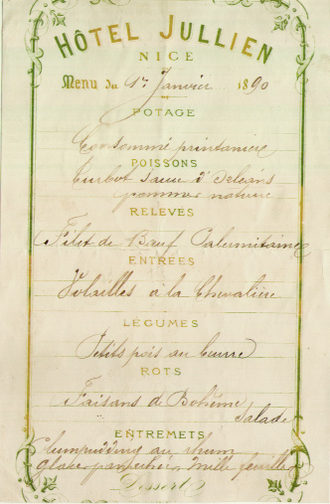 HÔTEL JULLIEN
NICE
Menu du 1er Janvier 1890
POTAGE
Consommé printanière
POISSONS
Turbot sauce d'Orléans
pommes nature
RELEVÉS
Filet de Bœuf Palermitaine
ENTRÉES
Volailles à la Chevalière
LÉGUMES
Petits pois au beurre
ROTS
Faisans de Bohême
Salade
ENTREMETS
Plumpudding au rhum
Glace mille feuilles
Dessert